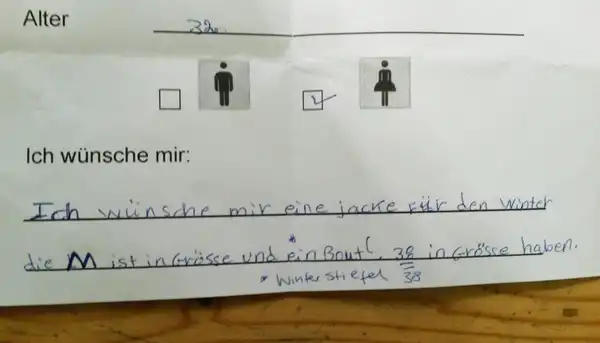 Alter
32
Ich wünsche mir:
Ich wünsche mir eine jacke für den Winter
die M ist in Grösse und ein * 38 in Grösse haben.
* Winter stiefel 38